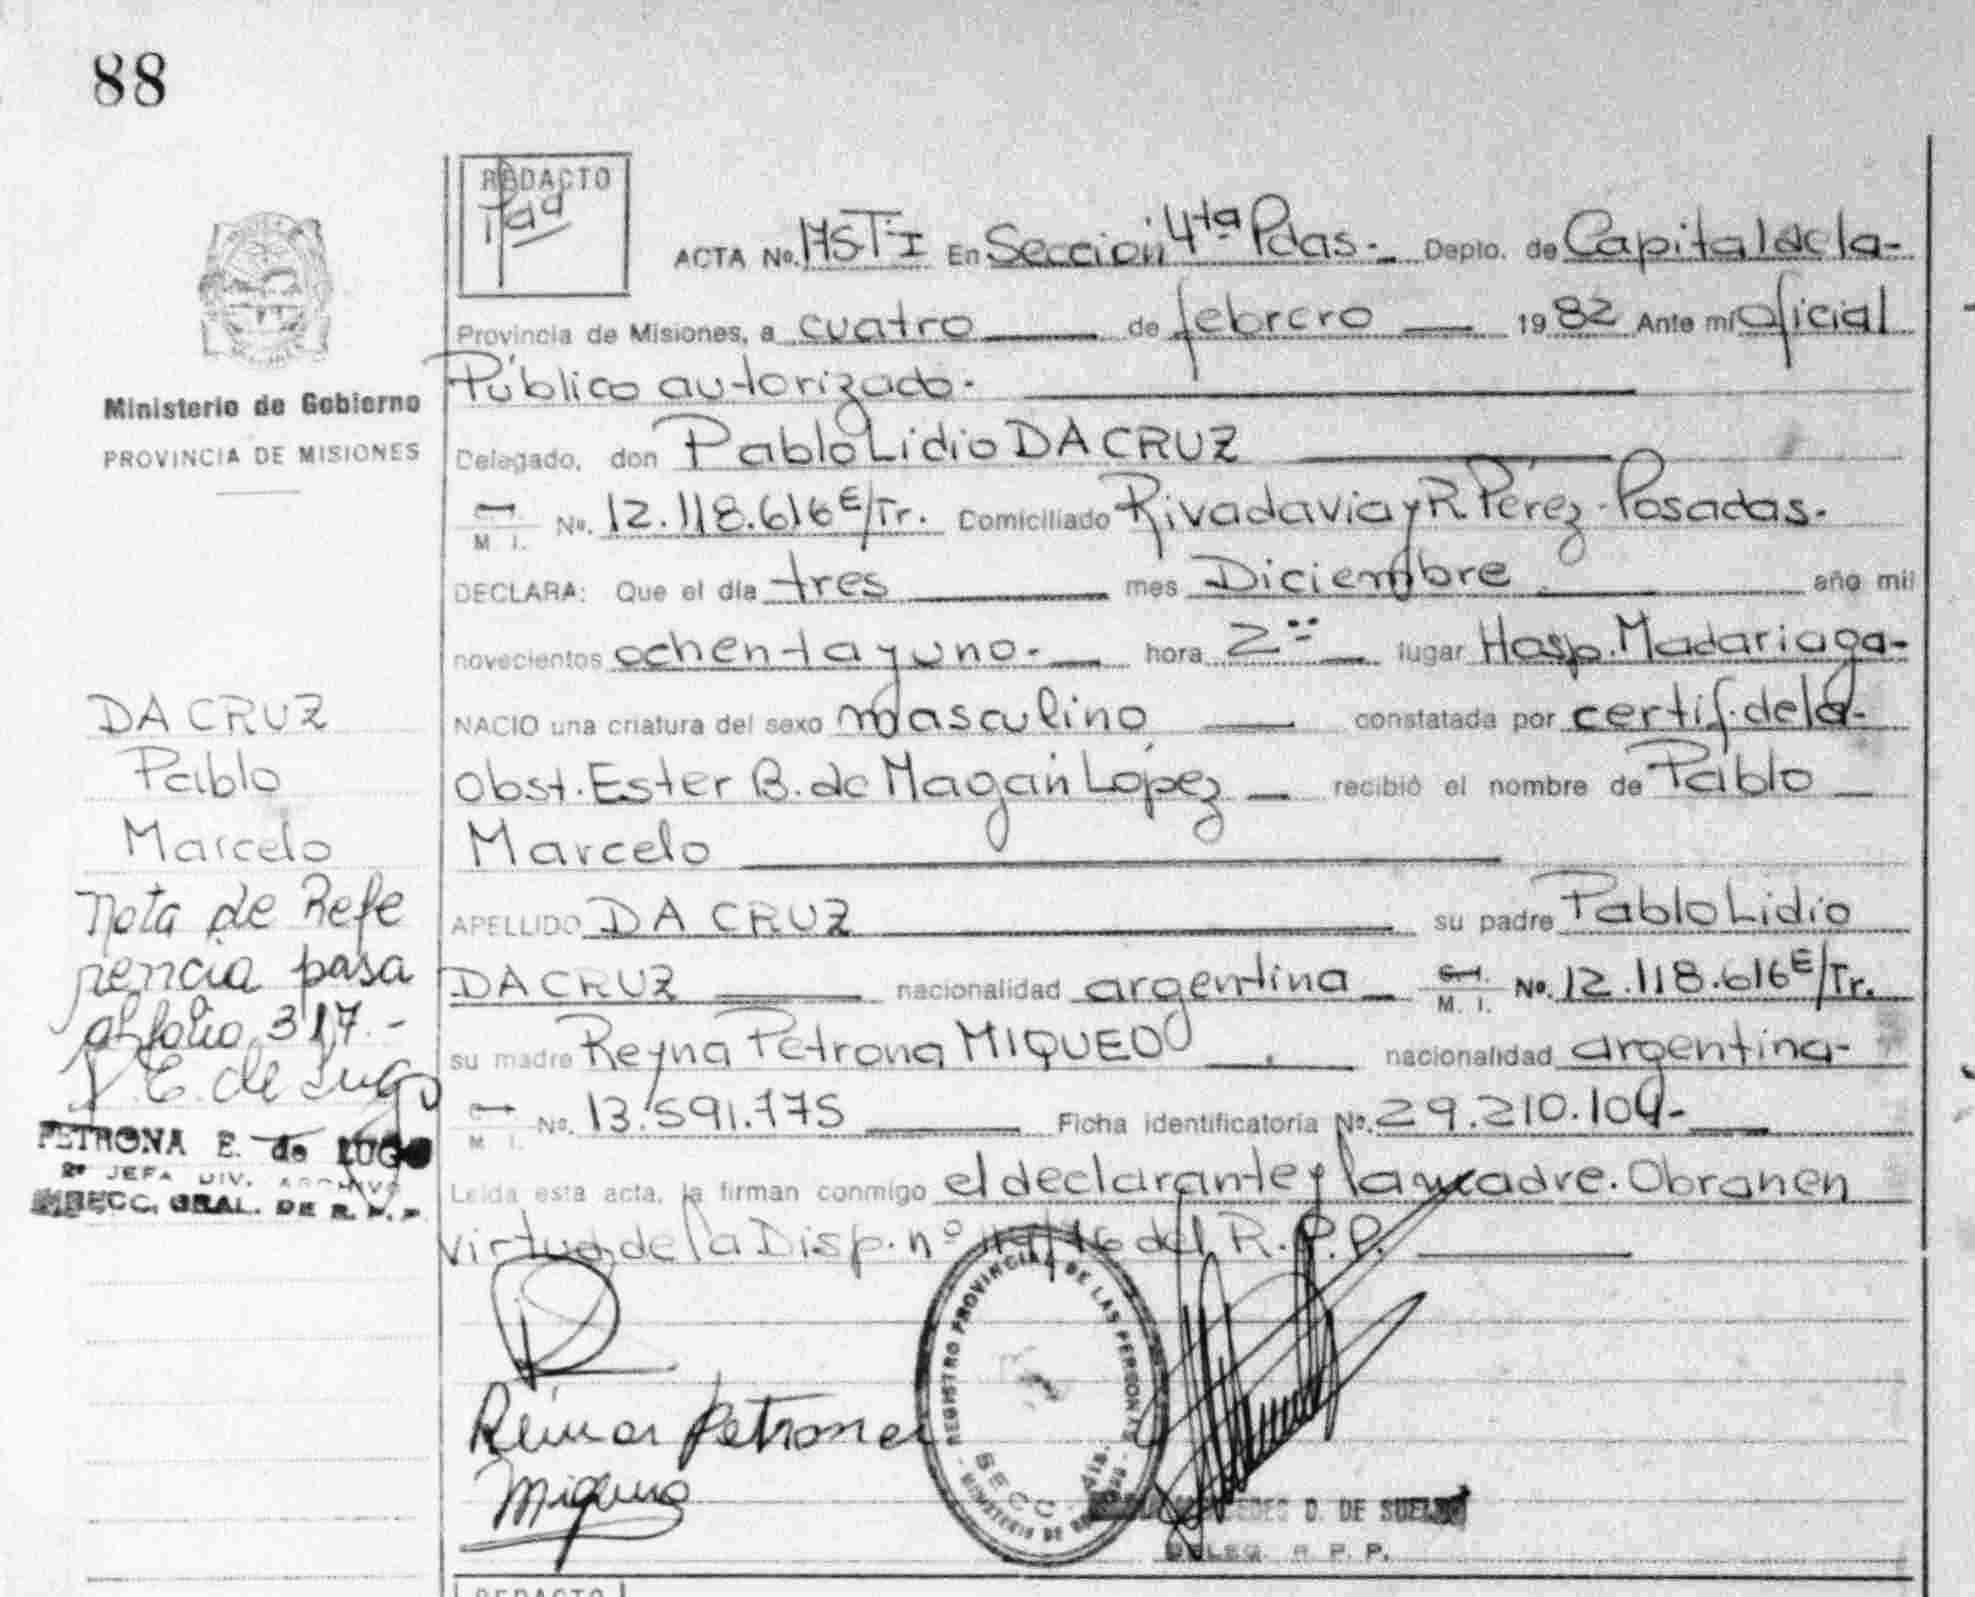 88
REDACTO
ACTA No. En Sección 4ta Pdas.- Depto. de Capital de la-
Provincia de Misiones, a cuatro de febrero 1982 Ante mi Oficial
Público autorizado.
Ministerio de Gobierno
PROVINCIA DE MISIONES
Delegado, don Pablo Lidio DA CRUZ
M. I. No. 12.118.616 E/Tr. Domiciliado Rivadavia y R. Pérez-Posadas.
DECLARA: Que el día tres mes Diciembre año mil
novecientos ochenta y uno.- hora 2 lugar Hosp. Madariaga-
NACIO una criatura del sexo masculino constatada por certif. de la-
Obst. Ester B. de Magan López recibió el nombre de Pablo
Marcelo
APELLIDO DA CRUZ su padre Pablo Lidio
DA CRUZ nacionalidad argentina M. I. No. 12.118.616 E/Tr.
su madre Reyna Petrona MIQUEO nacionalidad argentina-
M. I. No. 13.591.775 Ficha identificatoria No. 29.210.104-
Leída esta acta, la firman conmigo el declarante y la madre. Obran en
virtud de la Disp. nº del R.P.P.
DA CRUZ
Pablo
Marcelo
Nota de Refe
rencia pasa
al folio 317.-
P. E. de Lugo
PETRONA E. de LUGO
2º JEFA DIV. ARCHIVO
DIRECC. GRAL. DE R. P. P.
Petrona
REGISTRO PROVINCIAL DE LAS PERSONAS
SECC.
MINISTERIO DE
D. DE SUELDO
DELEG. R. P. P.
REDACTO